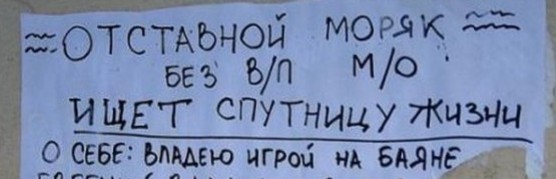 ОТСТАВНОЙ МОРЯК
БЕЗ В/П М/О
ИЩЕТ СПУТНИЦУ ЖИЗНИ
О СЕБЕ: ВЛАДЕЮ ИГРОЙ НА БАЯНЕ